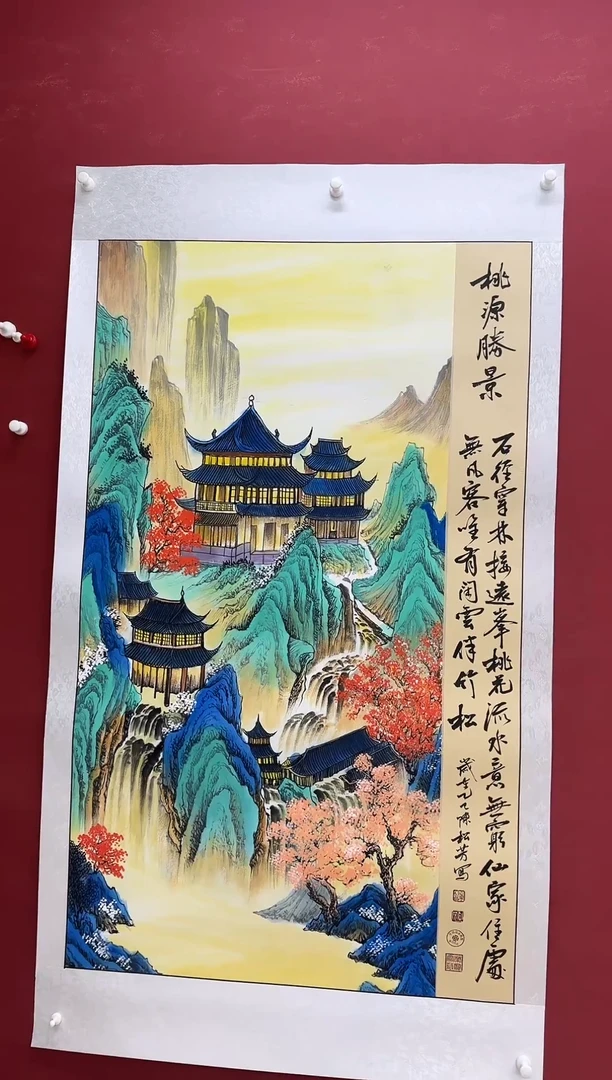 桃源勝景
石徑穿林接遠峯桃花流水意無窮仙家住處
無凡客唯有閑雲伴竹松
歲在乙巳陈松芳寫